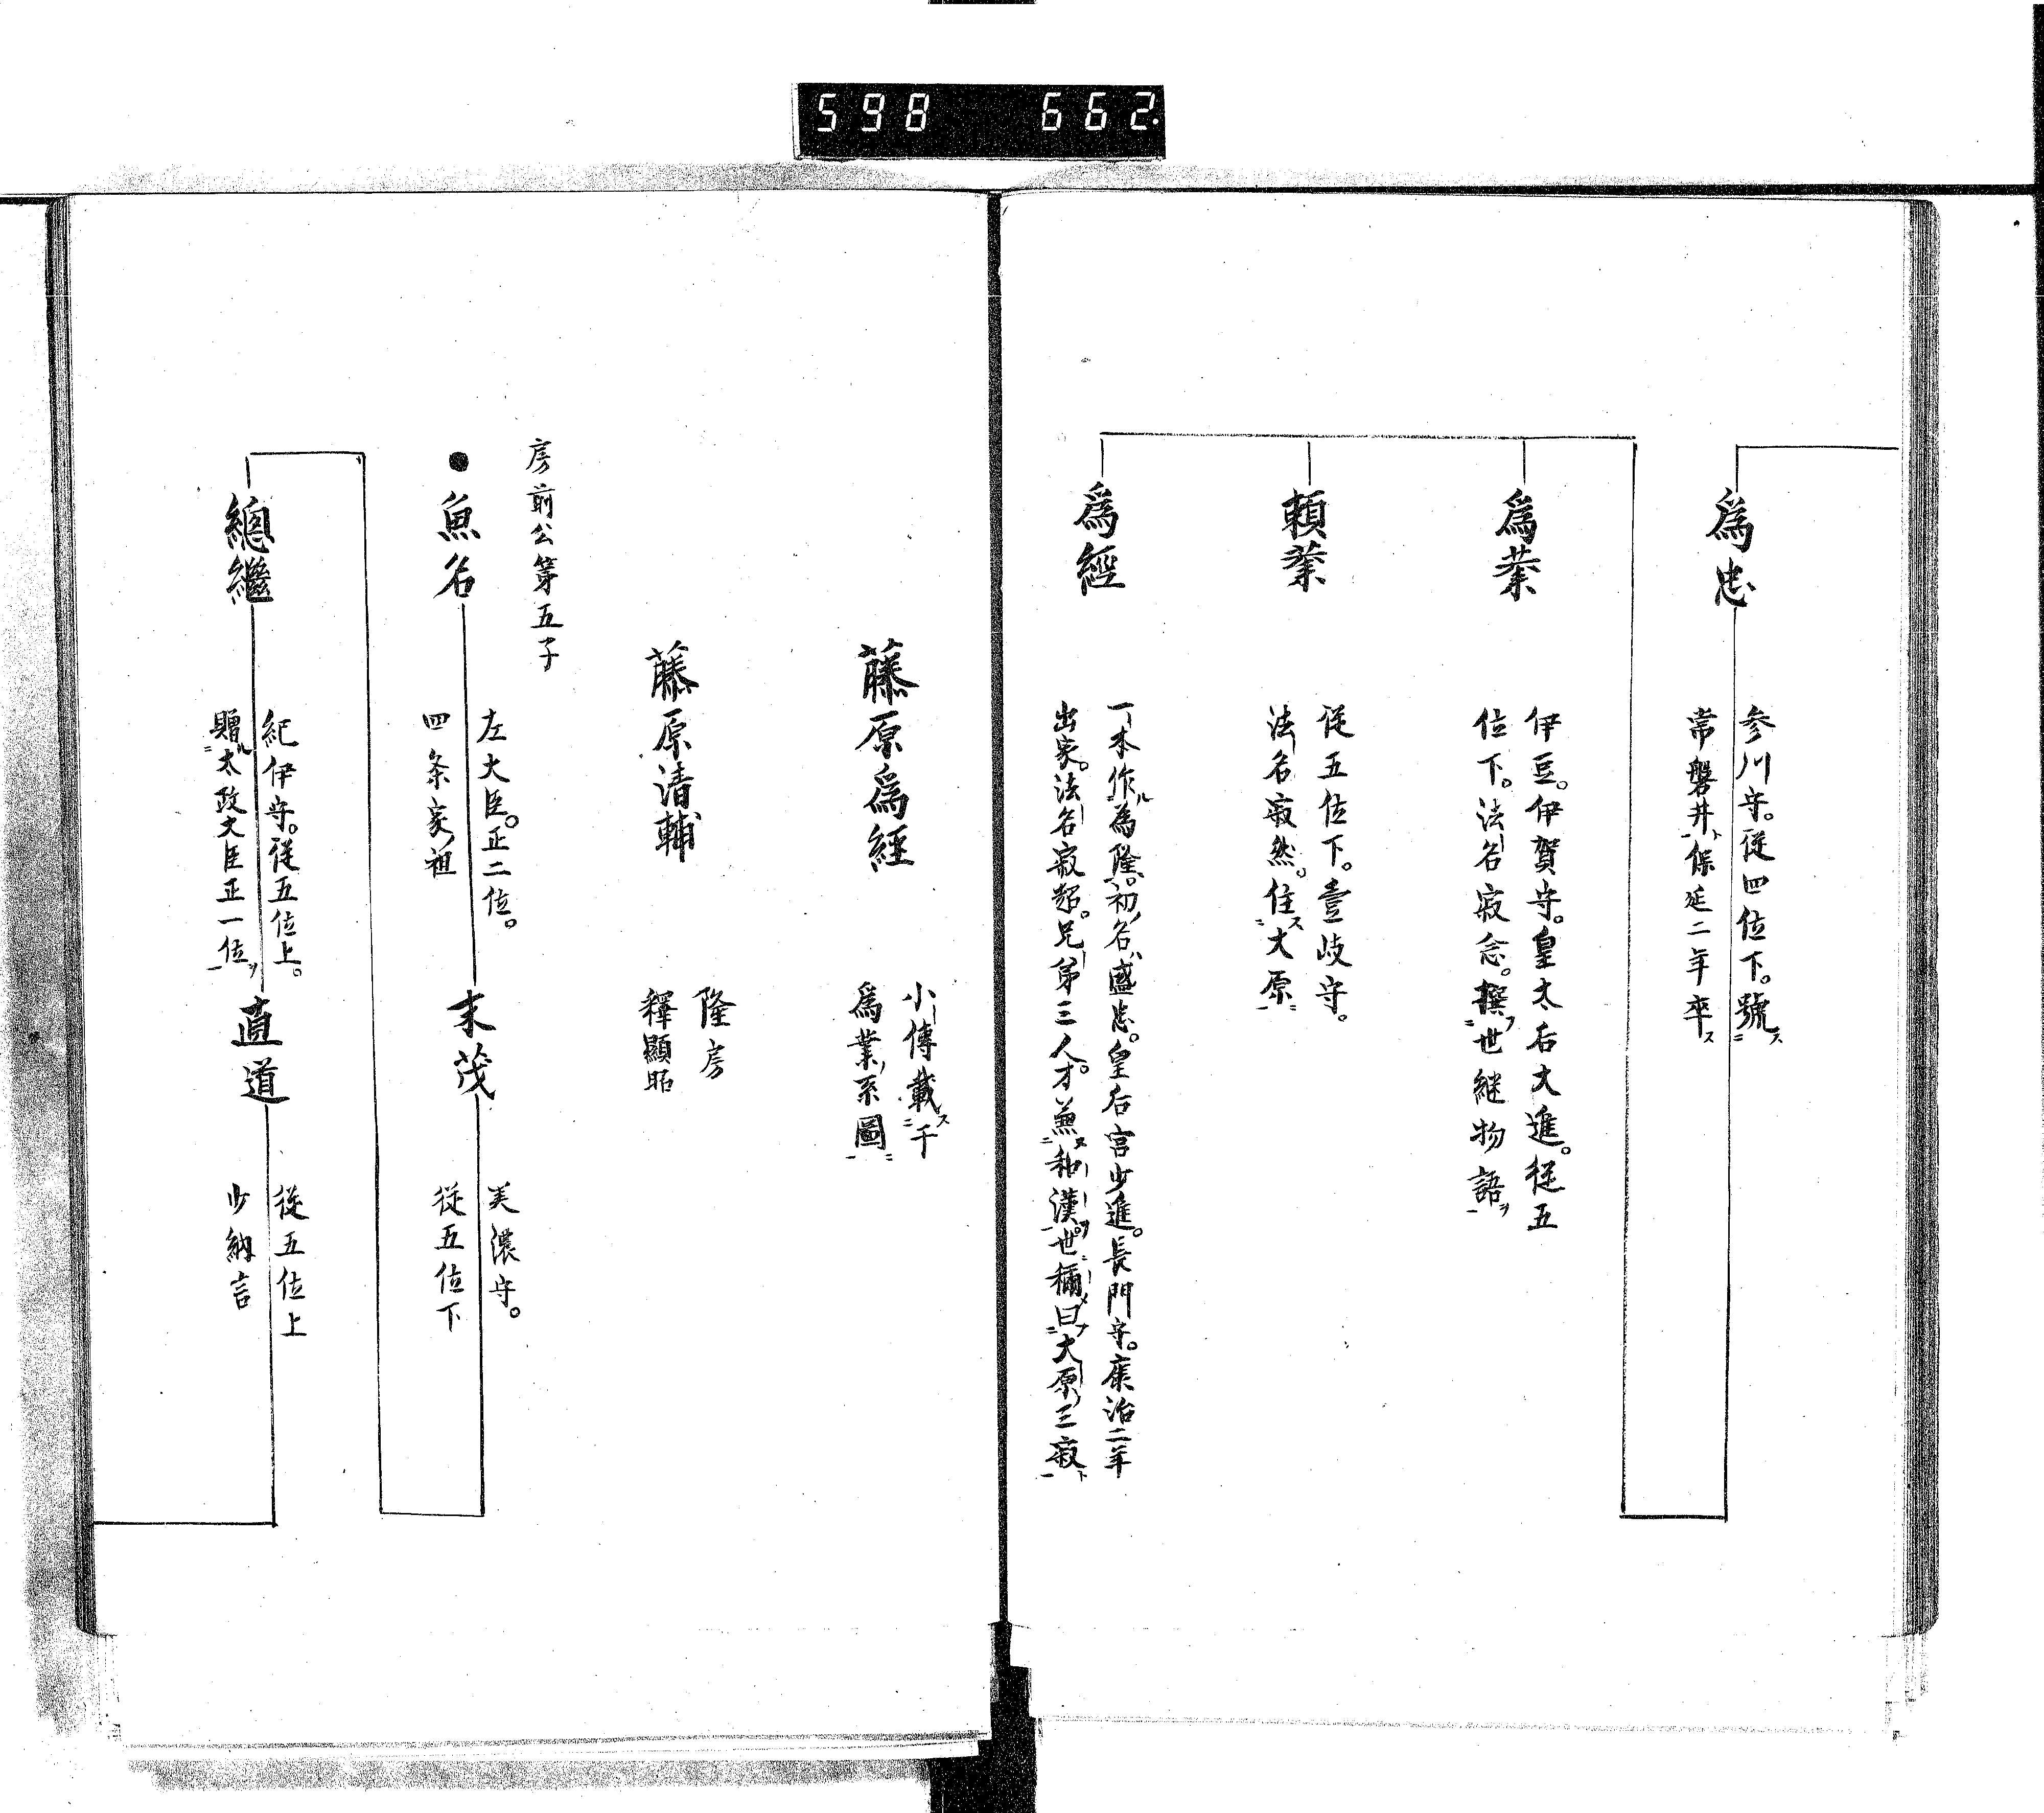 598 662
爲忠
参川守。従四位下。號ス
常磐井ト保延二年卒ス
爲業
伊豆。伊賀守。皇太后大進。従五
位下。法名寂念。撰フ世継物語ヲ
頼業
従五位下。壹岐守。
法名寂然。住ス大原ニ
爲經
一本作ル為隆。初ノ名ハ盛忠。皇后宮少進。長門守。康治二年
出家。法名寂超。兄弟三人。才兼ヌ和漢ヲ。世ニ稱メ曰フ大原ノ三寂ト
藤原爲經
小傳載ス于
爲業ノ系圖ニ
藤原清輔
隆房
釋顯昭
房前公第五子
魚名
左大臣。正二位。
四条家ノ祖
末茂
美濃守。
従五位下
總繼
紀伊守。従五位上。
贈ル太政大臣正一位ヲ
直道
従五位上
少納言